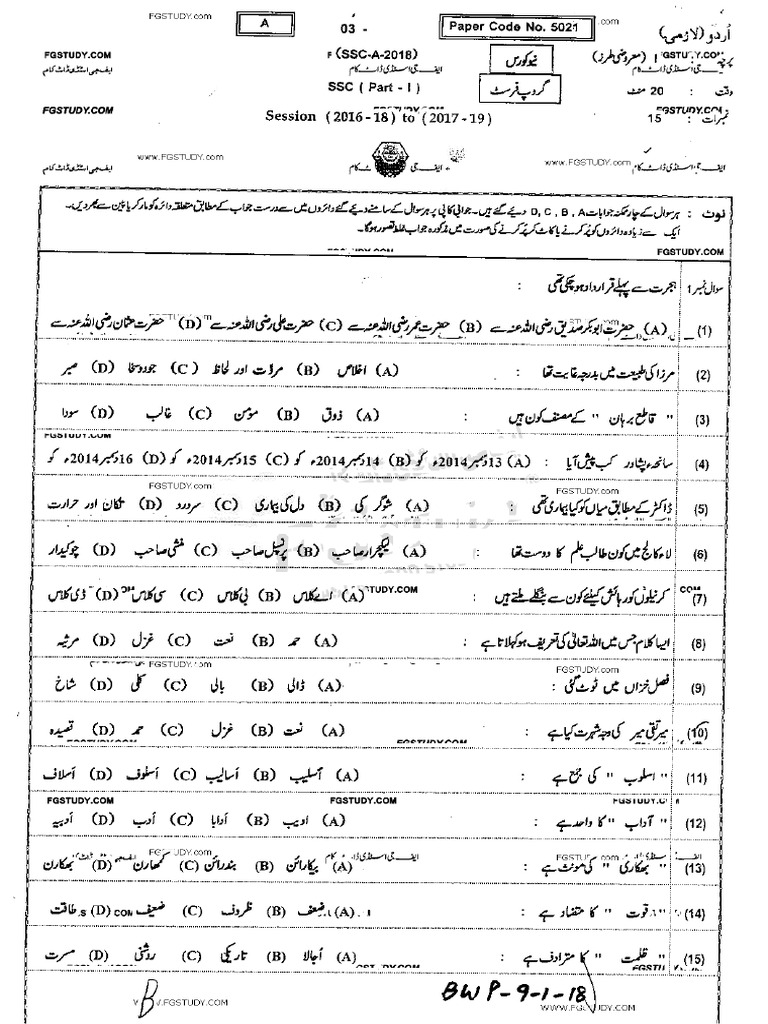 FGSTUDY.com
A 03 - Paper Code No. 5021 .com اُردو (لازمی)
FGSTUDY.COM (SSC-A-2018) نیو کورس پرچہ I (معروضی طرز)
ایف جی اسٹڈی ڈاٹ کام SSC ( Part - I ) ایف جی اسٹڈی ڈاٹ کام گروپ فرسٹ وقت : 20 منٹ
FGSTUDY.COM Session (2016-18) to (2017-19) FGSTUDY.COM نمبرات : 15
www.FGSTUDY.com www.FGSTUDY.com
ایف جی اسٹڈی ڈاٹ کام ایف جی کام ایف جی اسٹڈی ڈاٹ کام
نوٹ : ہر سوال کے چار ممکنہ جوابات D, C, B, A دیئے گئے ہیں۔ جوابی کاپی پر ہر سوال کے سامنے دیئے گئے دائروں میں سے درست جواب کے مطابق متعلقہ دائرہ کو مارکر یا پین سے بھر دیں۔
ایک سے زیادہ دائروں کو پُر کرنے یا کاٹ کر پُر کرنے کی صورت میں مذکورہ جواب غلط تصور ہوگا۔
FGSTUDY.COM FGSTUDY.COM
سوال نمبر 1 ہجرت سے پہلے قرارداد ہو چکی تھی :
(1) (A) حضرت ابوبکر صدیق رضی اللہ عنہ سے (B) حضرت عمر رضی اللہ عنہ سے (C) حضرت علی رضی اللہ عنہ سے (D) حضرت عثمان رضی اللہ عنہ سے
(2) مرزا کی طبیعت میں بدرجہ غایت تھا : (A) اخلاص (B) مروّت اور لحاظ (C) جود و سخا (D) صبر
(3) " قاطع برہان " کے مصنف کون ہیں : (A) ذوق (B) مؤمن (C) غالب (D) سودا
FGSTUDY.COM
(4) سانحہء پشاور کب پیش آیا : (A) 13 دسمبر 2014ء کو (B) 14 دسمبر 2014ء کو (C) 15 دسمبر 2014ء کو (D) 16 دسمبر 2014ء کو
FGSTUDY.com FGSTUDY.com
(5) ڈاکٹر کے مطابق میاں کو کیا بیماری تھی : (A) شوگر کی (B) دل کی بیماری (C) سر درد (D) تکان اور حرارت
(6) لاء کالج میں کون طالب علم کا دوست تھا : (A) لیکچرار صاحب (B) پرنسپل صاحب (C) منشی صاحب (D) چوکیدار
(7) کرنیلوں کو رہائش کیلئے کون سے بنگلے ملتے ہیں : (A) اے کلاس (B) بی کلاس (C) سی کلاس (D) ڈی کلاس
(8) ایسا کلام جس میں اللہ تعالیٰ کی تعریف ہو کہلاتا ہے : (A) حمد (B) نعت (C) غزل (D) مرثیہ
FGSTUDY.com FGSTUDY.com
(9) فصل خزاں میں ٹوٹ گئی : (A) ڈالی (B) بالی (C) کلی (D) شاخ
(10) میر تقی میر کی وجہ شہرت کیا ہے : (A) نعت (B) غزل (C) حمد (D) قصیدہ
FGSTUDY.COM FGSTUDY.COM
(11) " اسلوب " کی جمع ہے : (A) اسلیب (B) اسالیب (C) اسلوف (D) اسلاف
FGSTUDY.COM FGSTUDY.COM
(12) " آداب " کا واحد ہے : (A) ادیب (B) ادابا (C) ادب (D) ادبیہ
FGSTUDY.com ایف جی اسٹڈی ڈاٹ کام FGSTUDY.com
(13) " بھکاری " کی مونث ہے : (A) بیکارائن (B) بندرائن (C) کمھارن (D) بھکارن
(14) " قوت " کا متضاد ہے : (A) ضعف (B) ظروف (C) ضعیف (D) طاقت
(15) " ظلمت " کا مترادف ہے : (A) اُجالا (B) تاریکی (C) روشنی (D) مسرت
B FGSTUDY.COM BWP-9-1-18 WWW.FGSTUDY.COM